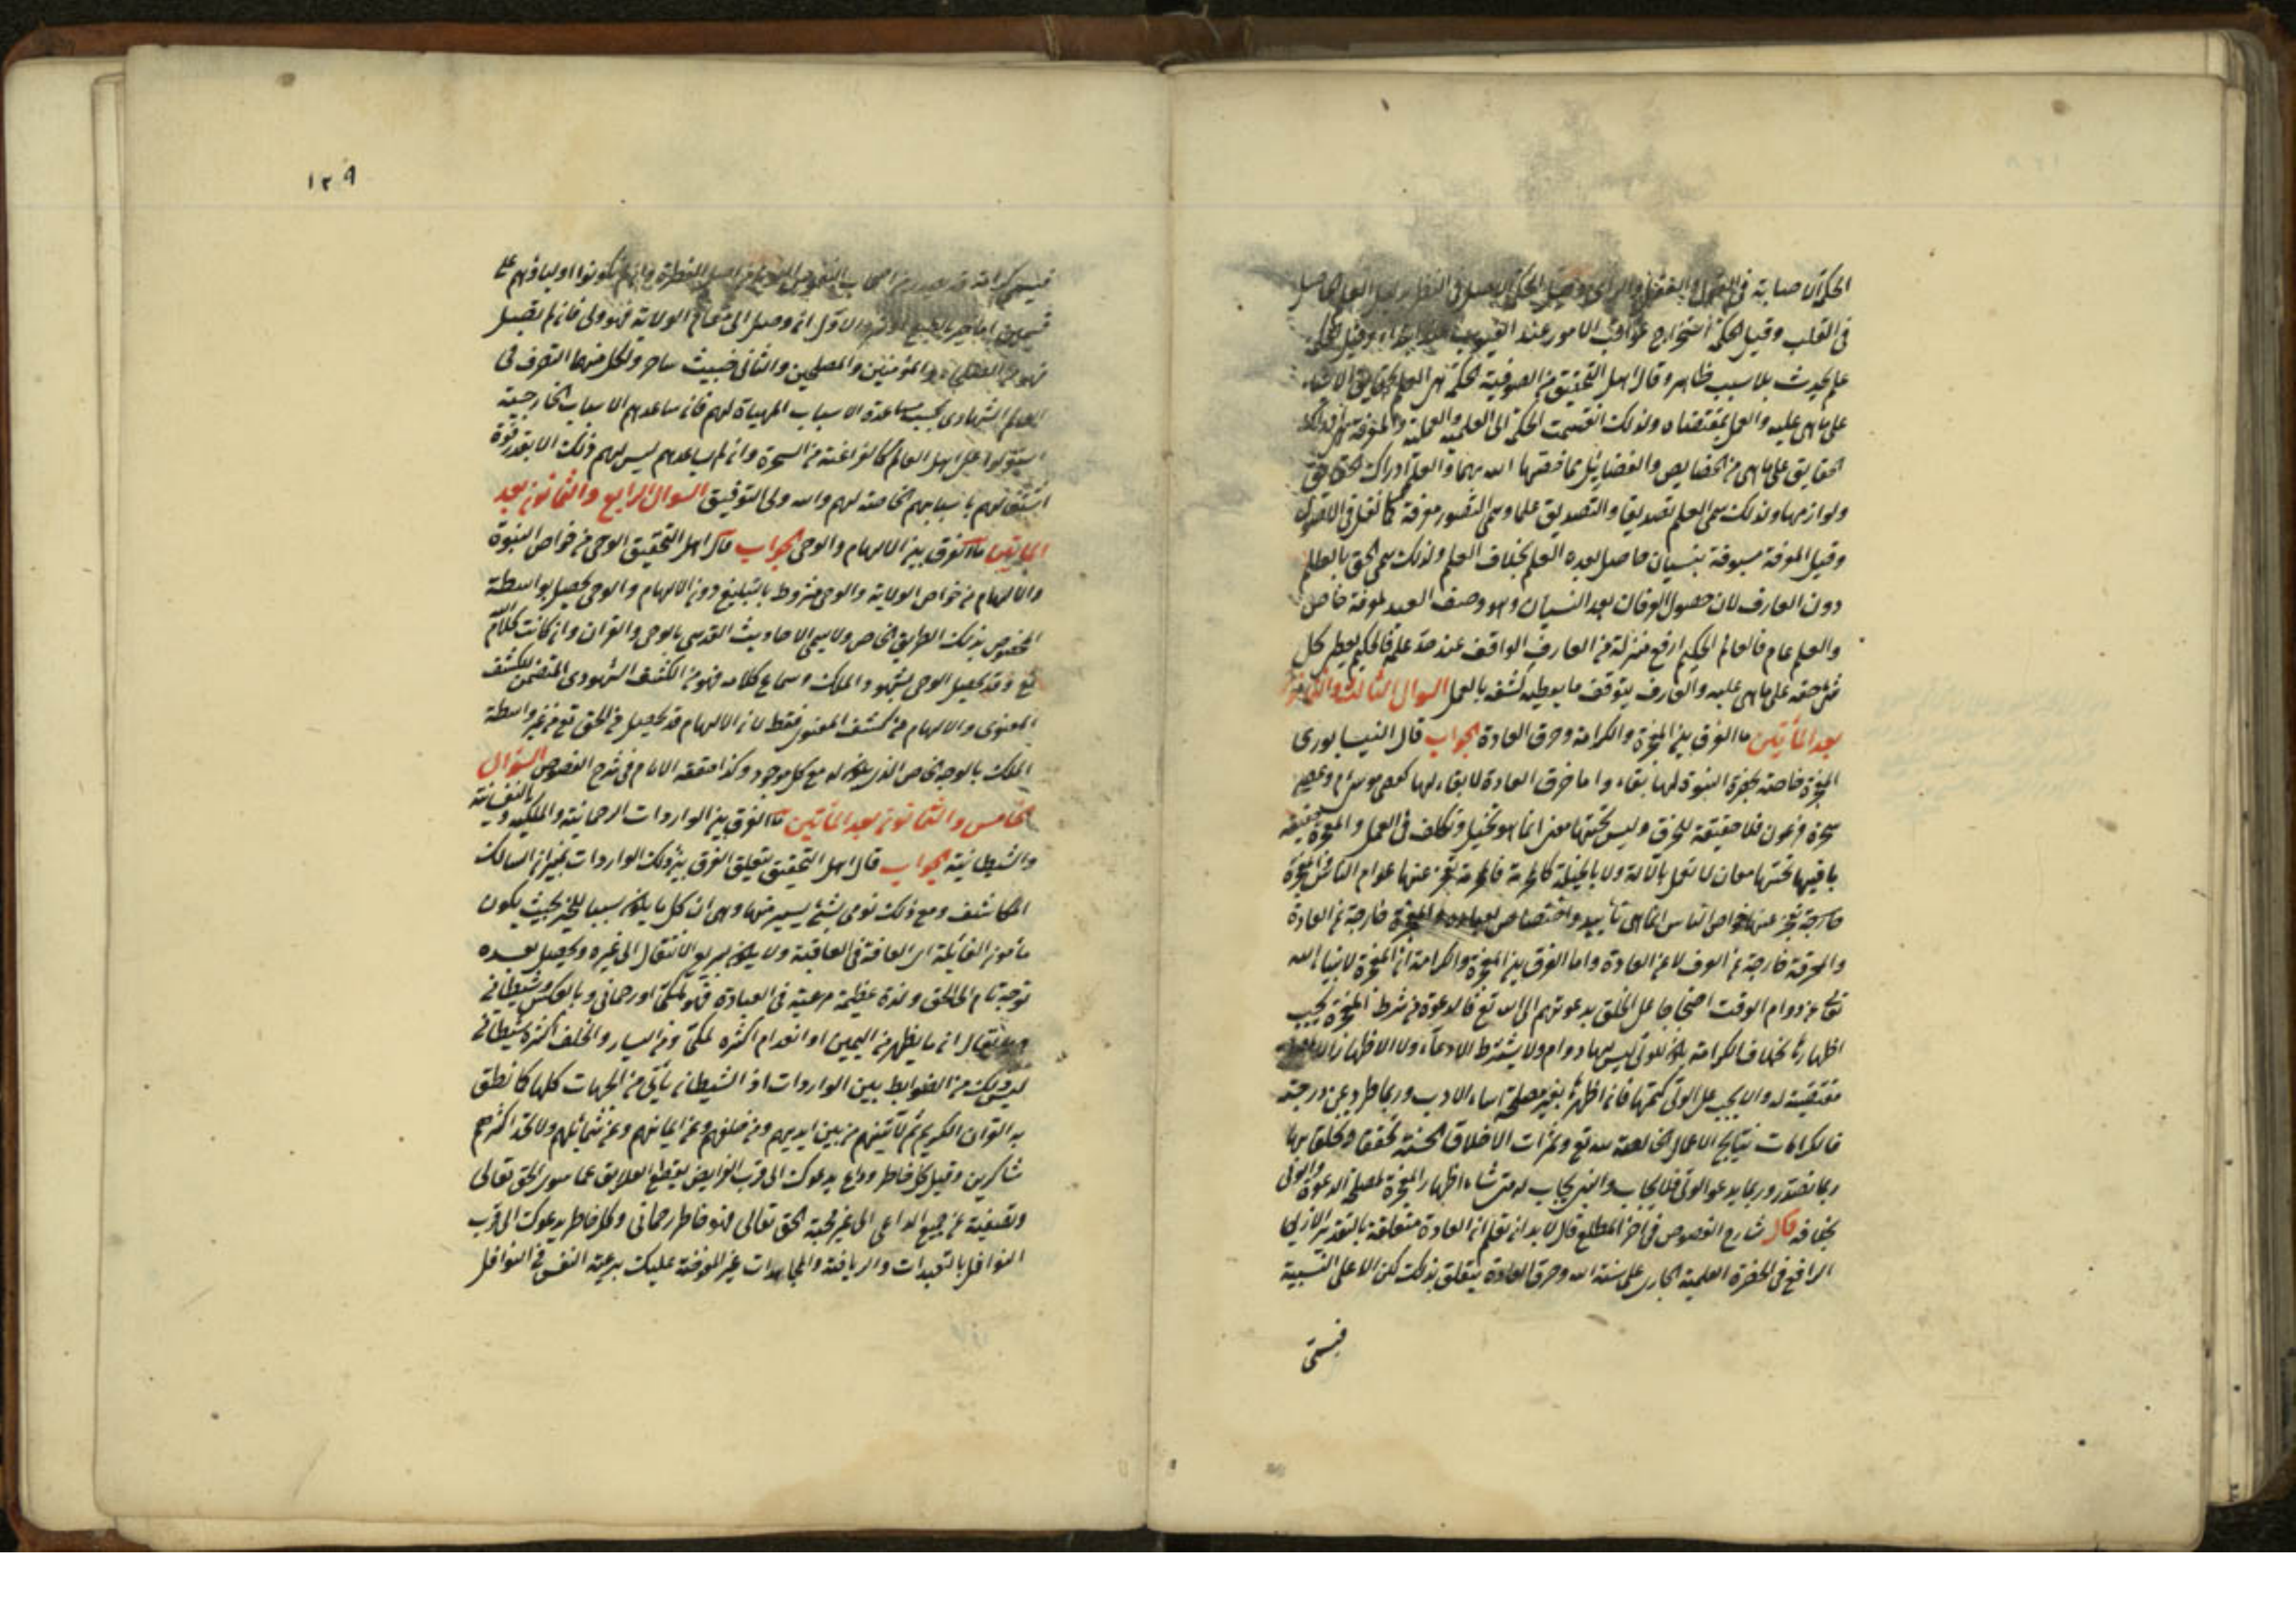 الحكمة الاصابة في القول والفعل والراى وقيل الحكمة العلم الحاصل
في القلب وقيل الحكمة استخراج عواقب الامور عند الغيوب وقيل الحكمة
علم يحدث بلا سبب ظاهر وقال اهل التحقيق من الصوفية الحكمة هى العلم بحقايق الاشياء
على ما هى عليه والعمل بمقتضاه ولذلك انقسمت الحكمة الى العلمية والعملية والمعرفة هى ادراك
الحقايق على ما هى من الخصايص والفضايل بما خصتها الله بها والعلم ادراك الحقايق
ولوازمها ولذلك سمى العلم تصديقا والتصديق علما وسمى التصور معرفة كما نقل في الاصول
وقيل المعرفة مسبوقة بنسيان حاصل بعده العلم بخلاف العلم ولذلك سمى الحق بالعالم
دون العارف لان حصول العرفان بعد النسيان وهو وصف العبد لمعرفة خاص
والعلم عام فالعالم الحكيم ارفع منزلة من العارف الواقف عند حد علمه فالحكيم يعطى كل
شئ حقه على ما هى عليه والعارف يتوقف ما يعطيه كشفه بالعمل السوال الثالث والثمانون
بعد المأتين ما الفرق بين المعجزة والكرامة وخرق العادة الجواب قال النيسابورى
المعجزة خاصة بحضرة النبوة لها بقاء واما خرق العادة لا بقاء لها كعصى موسى م وعصى
سحرة فرعون فلا حقيقة للخرق وليس تحتها معنى انما هو تخيل وتكلف في العمل والمعجزة حقيقة
باقيها تحتها معان لا تعمل بالآلة ولا بالحيلة
خارجة تعجز عنها خواص الناس انما هى تأييد واختصاص لعباده والمعجزة خارجة عن العادة
والخرقة خارجة عن الوف لا عن العادة واما الفرق بين المعجزة والكرامة ان المعجزة لانبياء الله
تعالى عن دوام الوقت اضحا جاعل الخلق بدعوتهم الى الله تع فالدعوة من شرط المعجزة يجب
اظهارها بخلاف الكرامة يكون للولى ليس لها دوام ولا يشترط الادعاء ولا الاظهار
مقتضية له والا يجب على الولى كتمها فان اظهرها بغير مصلحة اساء الادب وربما طرد عن درجته
فالكرامات نتايج الاعمال الخالصة لله تع وثمرات الاخلاق الحسنة تحققا وتخلقا بها
ربما تصدر وربما يدعو الولى فلا يجاب والنبى يجاب له متى شاء اظهار المعجزة لمصلحة الدعوة والولى
بخلافه قال شارح الفصوص في اخر المطلع قال لا بد ان تعلم ان العادة متعلقة بالتقدير الازلى
الرافع في الحضرة العلمية الجارى على سنة الله وخرق العادة يتعلق بذلك لكن لا على النسبية
فيسمى
١٢٩
فيسمى كرامة قد يصدر من اصحاب النفوس القوية من اصل الفطرة وان لم يكونوا اولياء وهم على
قسمين اما خير بالطبع او شر والاول ان وصل الى مقام الولاية فهو ولى فان لم يصل
فهو من الصلحاء والمؤمنين والمصلحين والثانى خبيث ساحر ولكل منهما التصرف في
العالم الشهادى بحسب مساعدة الاسباب المهيأة لهم فان ساعدهم الاسباب الخارجية
استولوا على اهل العالم كالفراعنة من السحرة وان لم يساعدهم ليس لهم ذلك الا بقدر قوة
اشتق لهم باسبابهم الخاصة لهم والله ولى التوفيق السوال الرابع والثمانون بعد
المأتين ما الفرق بين الالهام والوحى الجواب قال اهل التحقيق الوحى من خواص النبوة
والالهام من خواص الولاية والوحى مشروط بالتبليغ دون الالهام والوحى يحصل بواسطة
المخصوص بذلك الطريق الخاص ولا يسمى الاحاديث القدسى بالوحى والقران وان كانت كلام الله
تع وقد يحصل الوحى بشهود الملك وسماع كلامه فهو من الكشف الشهودى المتضمن للكشف
المعنوى والالهام من كشف المعنوى فقط لان الالهام قد يحصل من الحق تع من غير واسطة
الملك بالوجه الخاص الذى يكون له مع كل موجود وكذا حققه الامام في شرح الفصوص السؤال
الخامس والثمانون بعد المأتين ما الفرق بين الواردات الرحمانية والملكيه وبالنفسانية
والشيطانية الجواب قال اهل التحقيق يتعلق الفرق بين ذلك الواردات بميزان السالك
المكاشف ومع ذلك نومى بشئ يسير منها وهى ان كل ما يكون سببا للخير بحيث يكون
مأمون الغائلة اى العافة في العاقبة ولا يكون سريع الانتقال الى غيره ويحصل بعده
توجه تام الى الحق ولذة عظيمة مرغبة في العبادة فهو ملكى او رحمانى وبالعكس شيطانى
وما يقال ان ما يظهر من اليمين او القدام اكثره ملكى ومن اليسار والخلف اكثره شيطانى
ليس ذلك من الضوابط بين الواردات اذ الشيطان يأتى من الجهات كلها كما نطق
به القران الكريم ثم لآتينهم من بين ايديهم ومن خلفهم وعن ايمانهم وعن شمائلهم ولا تجد اكثرهم
شاكرين وقيل كل خاطر وداع يدعوك الى قرب الفرايض بقطع العلايق عما سوى الحق تعالى
وتصفية عن جميع الداعى الى غير محبة الحق تعالى فهو خاطر رحمانى وكل خاطر يدعوك الى قرب
النوافل بالتعبدات والرياضة والمجاهدات غير المفروضة عليك برعية النفس في النوافل